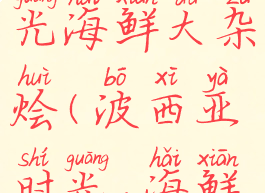 guāng hǎi xiān dà zá
光海鲜大杂
huì bō xī yà
烩(波西亚
shí guāng hǎi xiān
时光 海鲜